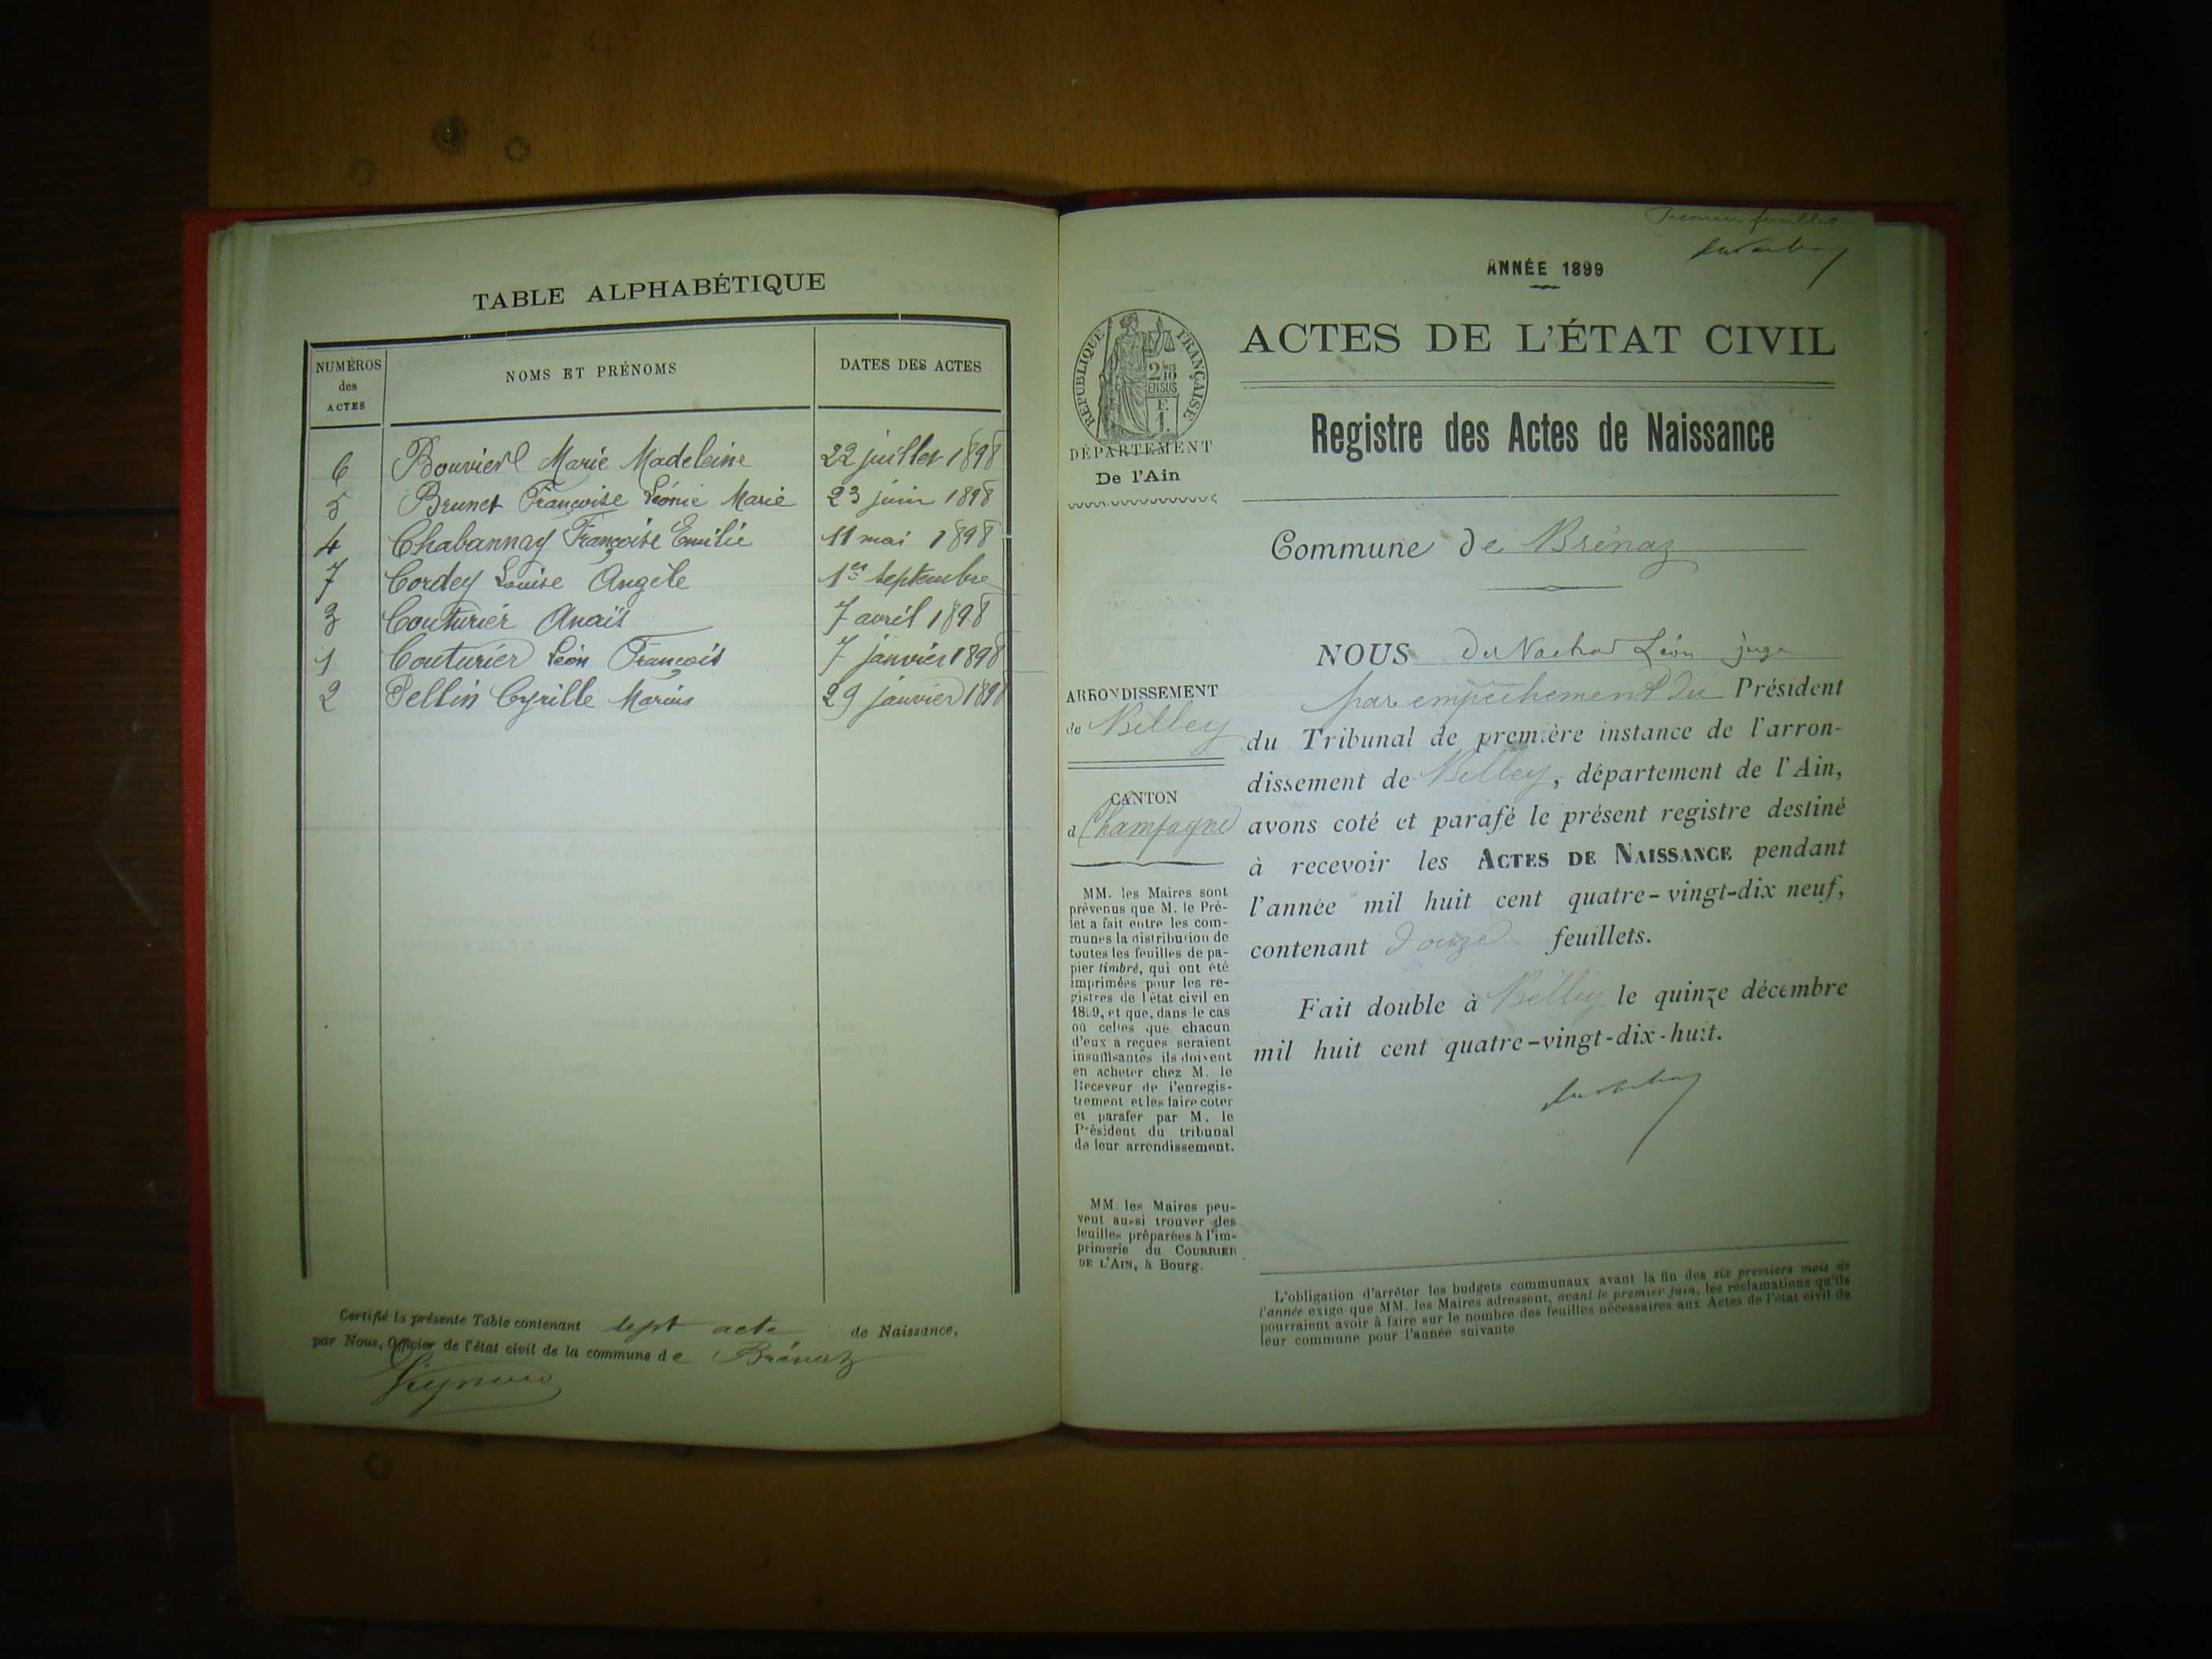 TABLE ALPHABÉTIQUE
NUMÉROS des ACTES
NOMS ET PRÉNOMS
DATES DES ACTES
6 Bouvier Marie Madeleine 22 juillet 1898
5 Brunet Françoise Léonie Marie 23 juin 1898
4 Chabannay Françoise Emilie 11 mai 1898
7 Cordey Louise Angèle 1er septembre
3 Couturier Anaïs 7 avril 1898
1 Couturier Léon François 7 janvier 1898
2 Pellin Cyrille Marius 29 janvier 1898
Certifié la présente Table contenant sept acte de Naissance,
par Nous, Officier de l'état civil de la commune de Brénaz
Premier feuillet
ANNÉE 1899
RÉPUBLIQUE FRANÇAISE
DÉPARTEMENT
De l'Ain
ACTES DE L'ÉTAT CIVIL
Registre des Actes de Naissance
Commune de Brénaz
ARRONDISSEMENT
de Belley
CANTON
d Champagne
MM. les Maires sont
prévenus que M. le Pré-
fet a fait entre les com-
munes la distribution de
toutes les feuilles de pa-
pier timbré, qui ont été
imprimées pour les re-
gistres de l'état civil en
1899, et que, dans le cas
où celles que chacun
d'eux a reçues seraient
insuffisantes ils doivent
en acheter chez M. le
Receveur de l'enregis-
trement et les faire coter
et parafer par M. le
Président du tribunal
de leur arrondissement.
MM. les Maires peu-
vent aussi trouver des
feuilles préparées à l'im-
primerie du COURRIER
DE L'AIN, à Bourg.
NOUS Léon juge
par empêchement du Président
du Tribunal de première instance de l'arron-
dissement de Belley, département de l'Ain,
avons coté et parafé le présent registre destiné
à recevoir les ACTES DE NAISSANCE pendant
l'année mil huit cent quatre-vingt-dix neuf,
contenant douze feuillets.
Fait double à Belley le quinze décembre
mil huit cent quatre-vingt-dix-huit.
L'obligation d'arrêter les budgets communaux avant la fin des six premiers mois de
l'année exige que MM. les Maires adressent, avant le premier juin, les réclamations qu'ils
pourraient avoir à faire sur le nombre des feuilles nécessaires aux Actes de l'état civil de
leur commune pour l'année suivante